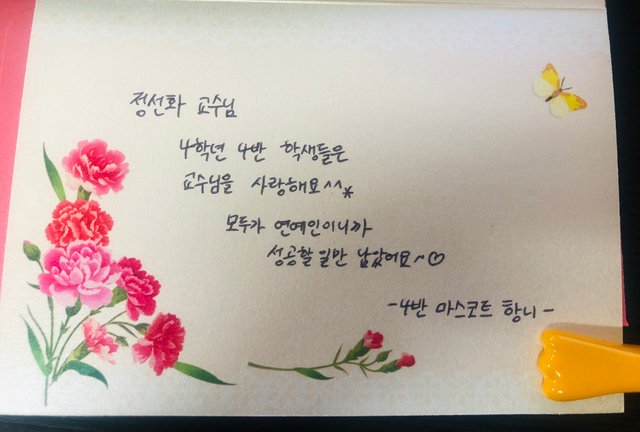 정선화 교수님
4학년 4반 학생들은
교수님을 사랑해요^^*
모두가 연예인이니까
성공할일만 남았어요~♡
-4반 마스코트 항니-